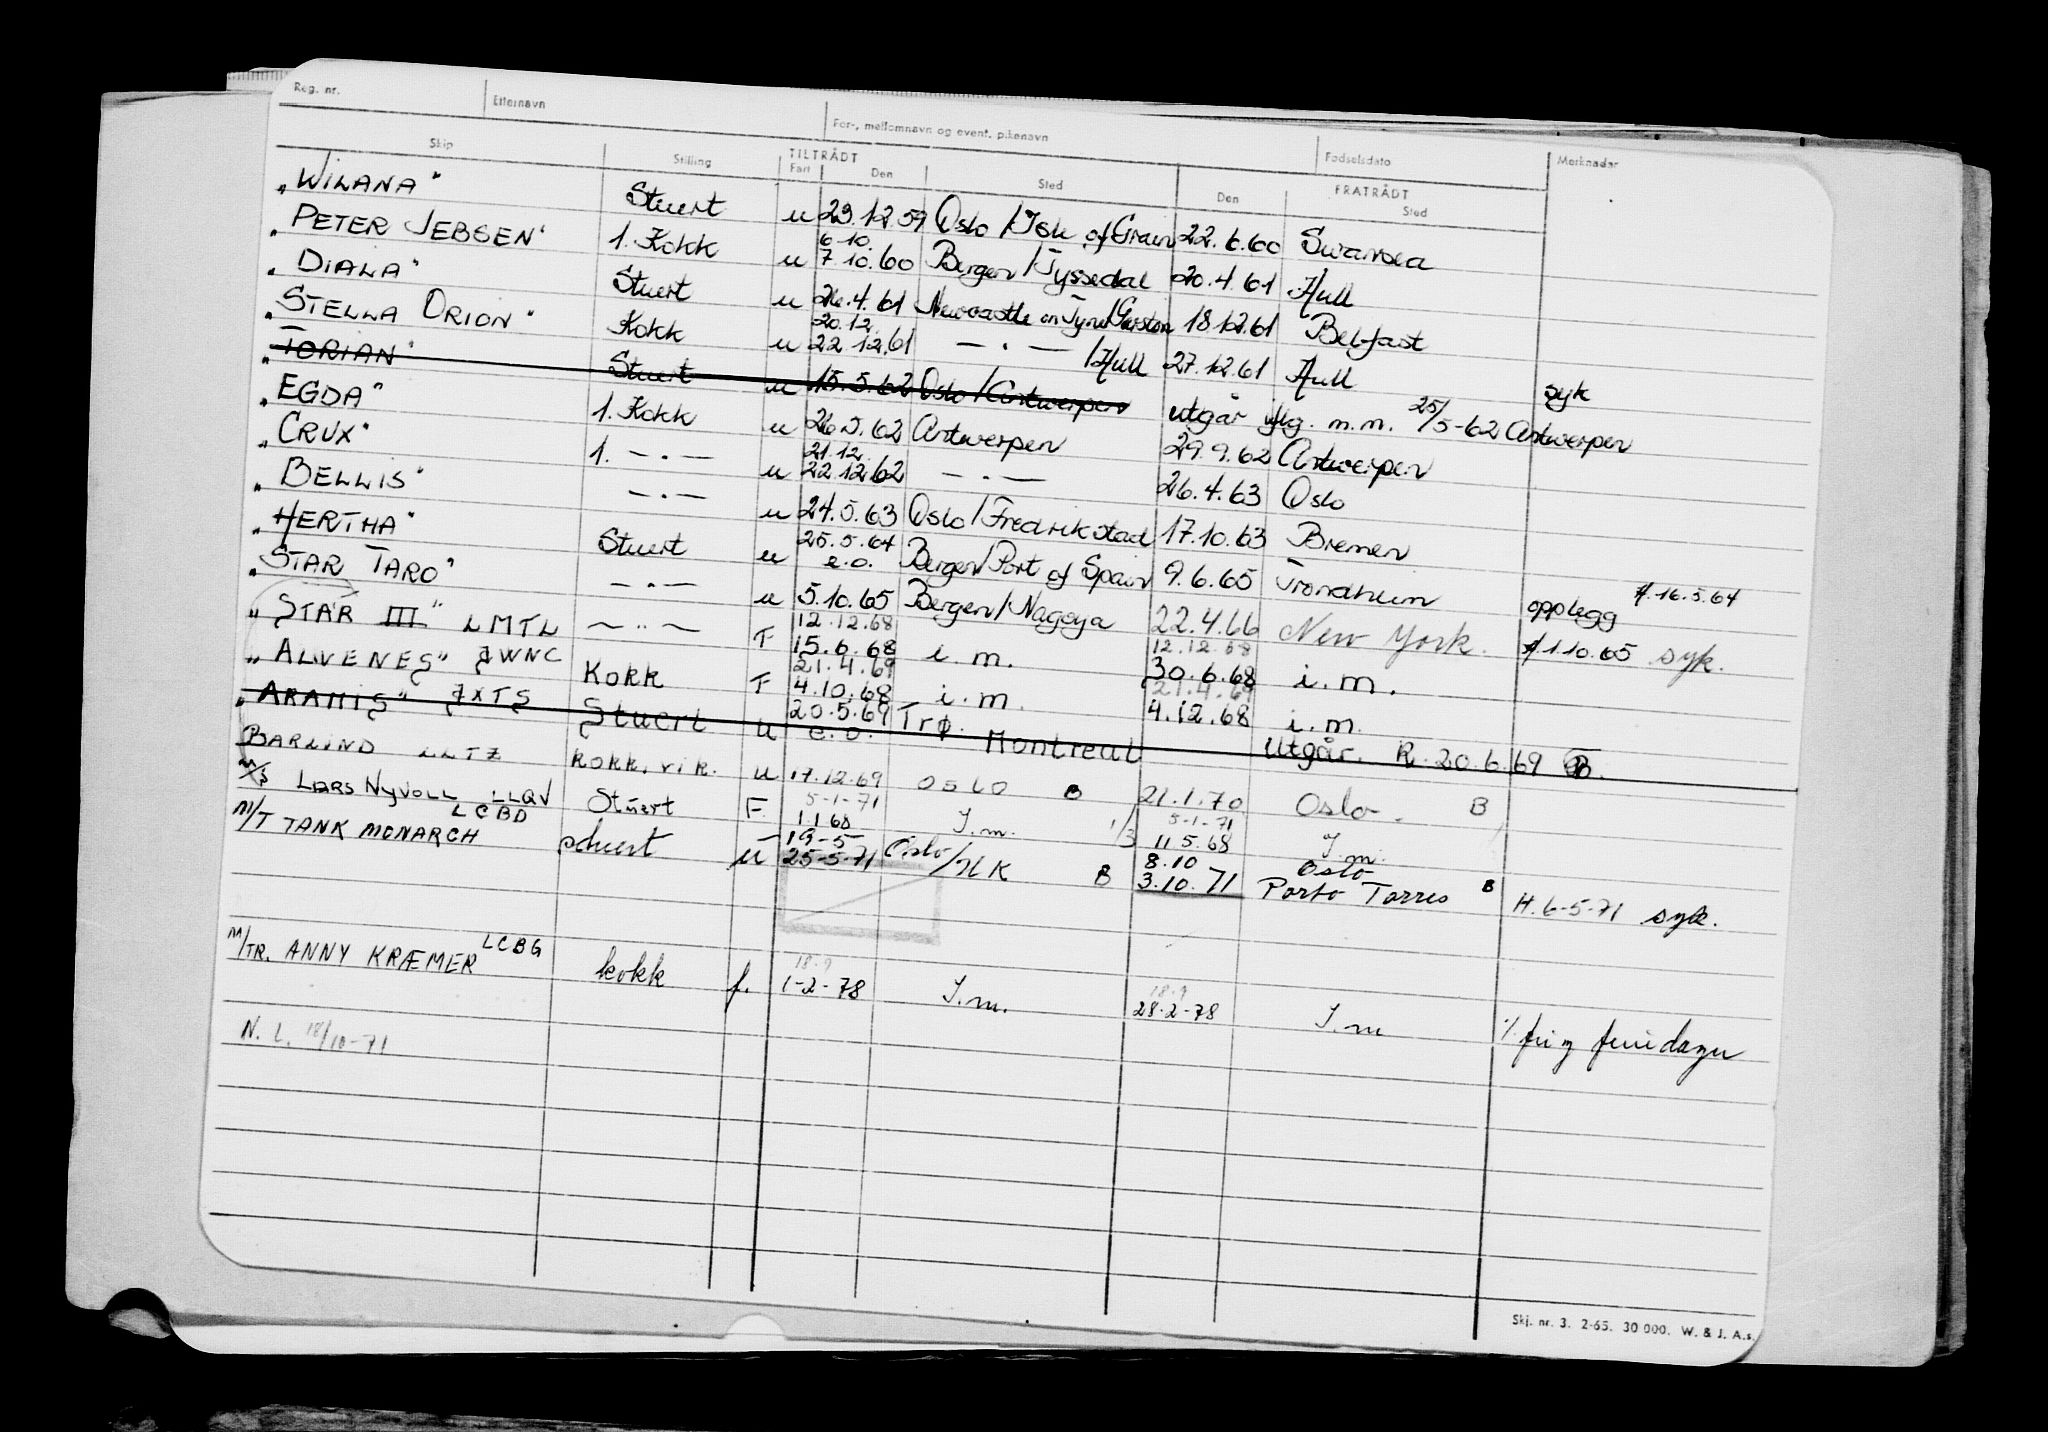 Reg. nr. Etternavn For-, mellomnavn og event. pikenavn Fødselsdato Merknader
Skip Stilling TILTRÅDT FRATRÅDT
Fart Den Sted Den Sted
"WILANA" Stuert u 29.12.59 Oslo/Isle of Grain 22.6.60 Swansea
"PETER JEBSEN" 1. Kokk u 6.10. 7.10.60 Bergen/Tyssedal 20.4.61 Hull
"DIALA" Stuert u 26.4.61 Newcastle on Tyne/Garston 18.12.61 Belfast
"STELLA ORION" Kokk u 20.12. 22.12.61 — . — /Hull 27.12.61 Hull syk
"TORIAN" Stuert u 15.5.62 Oslo/Antwerpen utgår iflg. m.m. 25/5-62 Antwerpen
"EGDA" 1. Kokk u 26.5.62 Antwerpen 29.9.62 Antwerpen
"CRUX" 1. — . — u 21.12. 22.12.62 — . — 26.4.63 Oslo
"BELLIS" — . — u 24.5.63 Oslo/Fredrikstad 17.10.63 Bremen
"HERTHA" Stuert u 25.5.64 e.o. Bergen/Port of Spain 9.6.65 Trondheim opplegg A.16.5.64
"STAR TARO" — . — u 5.10.65 Bergen/Nagoya 22.4.66 New York. A 1.10.65 syk.
"STAR III" LMTL — " — F 12.12.68 15.6.68 i.m. 12.12.68 30.6.68 i.m.
"ALVENES" JWNC Kokk F 21.4.69 4.10.68 i.m. 21.4.69 4.12.68 i.m.
"ARAMIS" JXTS Stuert u 20.5.69 e.o. Trø. Montreal utgår. R. 20.6.69 B.
BARLIND LLTZ Kokk. vik. u 17.12.69 OSLO B 21.1.70 Oslo. B
M/S LARS NYVOLL LLQV Stuert F 5-1-71 1 1 68 I.m. 1/3 5-1-71 11 5.68 I.m.
M/T TANK MONARCH LCBD stuert u 19-5 25-5-71 Oslo/NK B 8.10 3.10.71 Oslo Porto Torres B H.6-5-71 syk.
M/TR. ANNY KRÆMER LCBG kokk f. 18.9 1-2-78 I.m. 18.9 28.2-78 I.m
N.L. 18/10-71
Skj. nr. 3. 2-65. 30 000. W. & J. A.s.